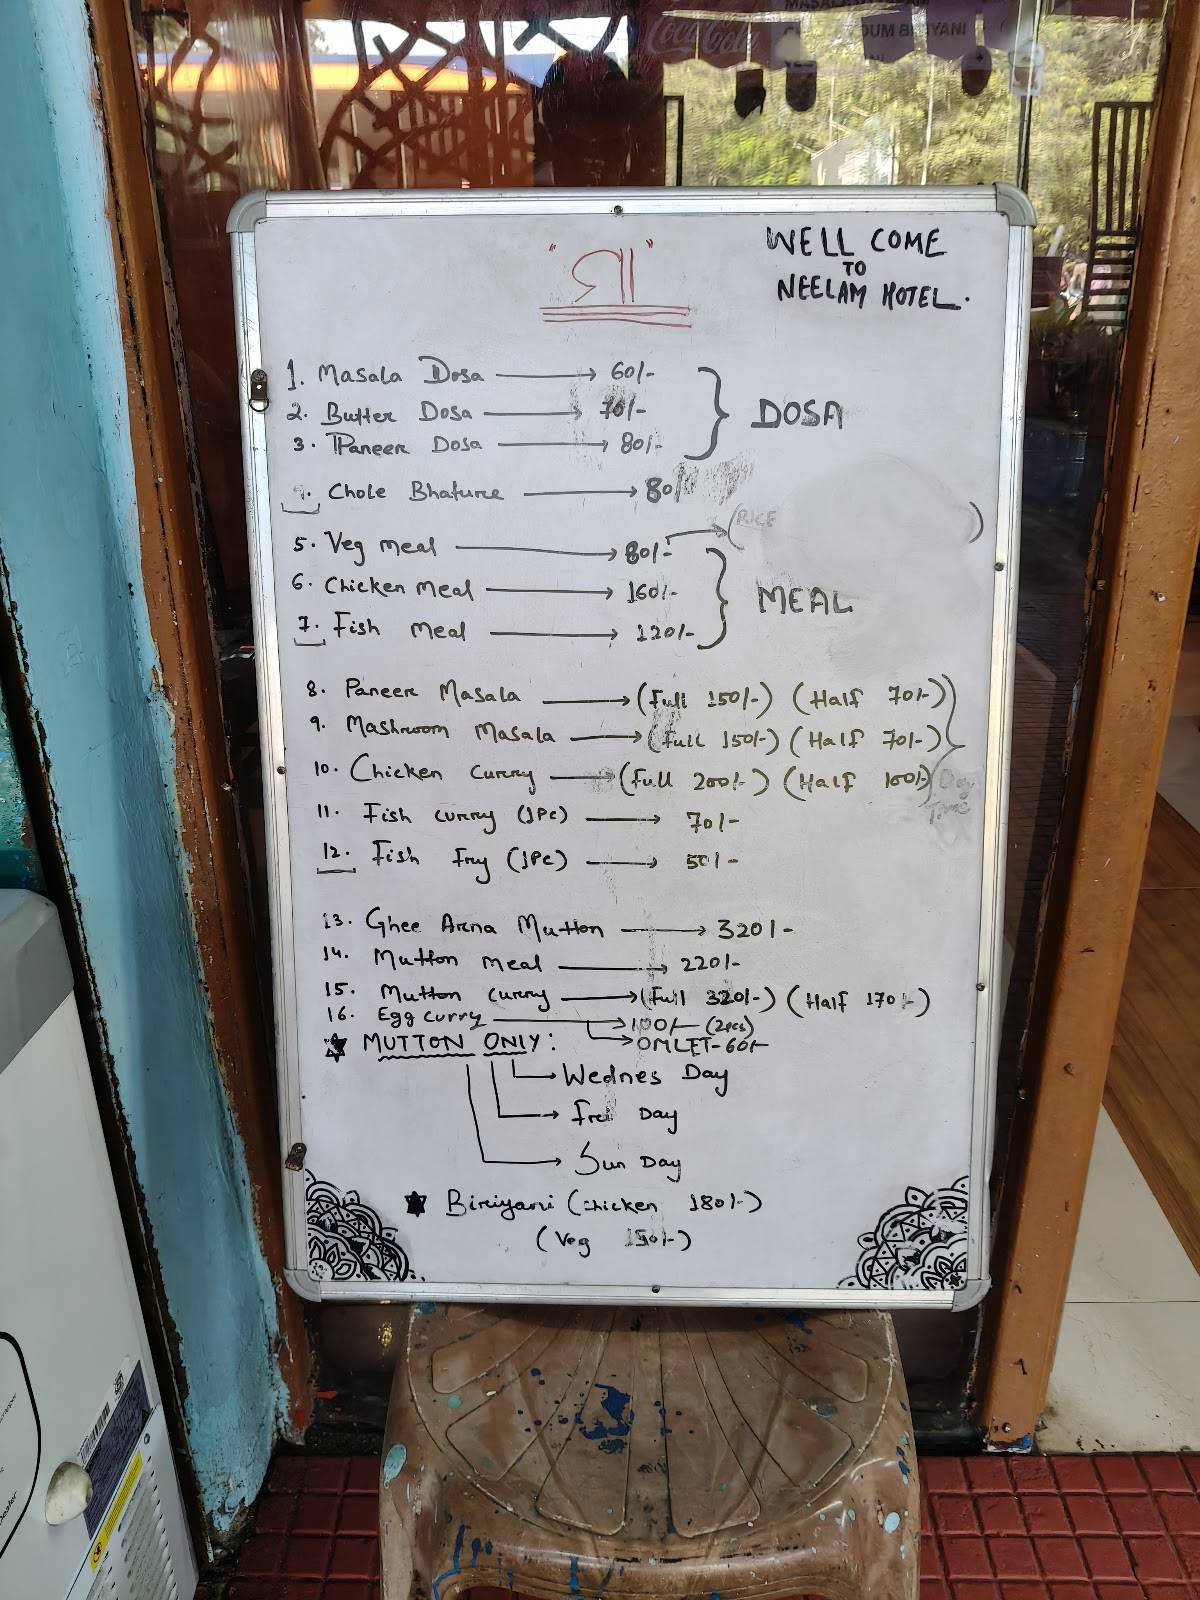 Coca-Cola
DUM BIRYANI
" ମା "
WELL COME
TO
NEELAM HOTEL.
1. Masala Dosa → 60/-
2. Butter Dosa → 70/-
3. Paneer Dosa → 80/-
DOSA
4. Chole Bhature → 80/-
5. Veg meal → 80/- → (RICE )
6. Chicken meal → 160/-
7. Fish meal → 120/-
MEAL
8. Paneer Masala → (Full 150/-) (Half 70/-)
9. Mashroom Masala → (Full 150/-) (Half 70/-)
10. Chicken curry → (Full 200/-) (Half 100/-)
Day
Time
11. Fish curry (1Pc) → 70/-
12. Fish Fry (1Pc) → 50/-
13. Ghee Anna Mutton → 320/-
14. Mutton meal → 220/-
15. Mutton curry → (Full 320/-) (Half 170/-)
16. Egg curry → 100/- (2pcs)
→ OMLET-60/-
MUTTON ONLY:
→ Wednes Day
→ Fri Day
→ Sun Day
Biriyani (chicken 180/-)
(Veg 150/-)